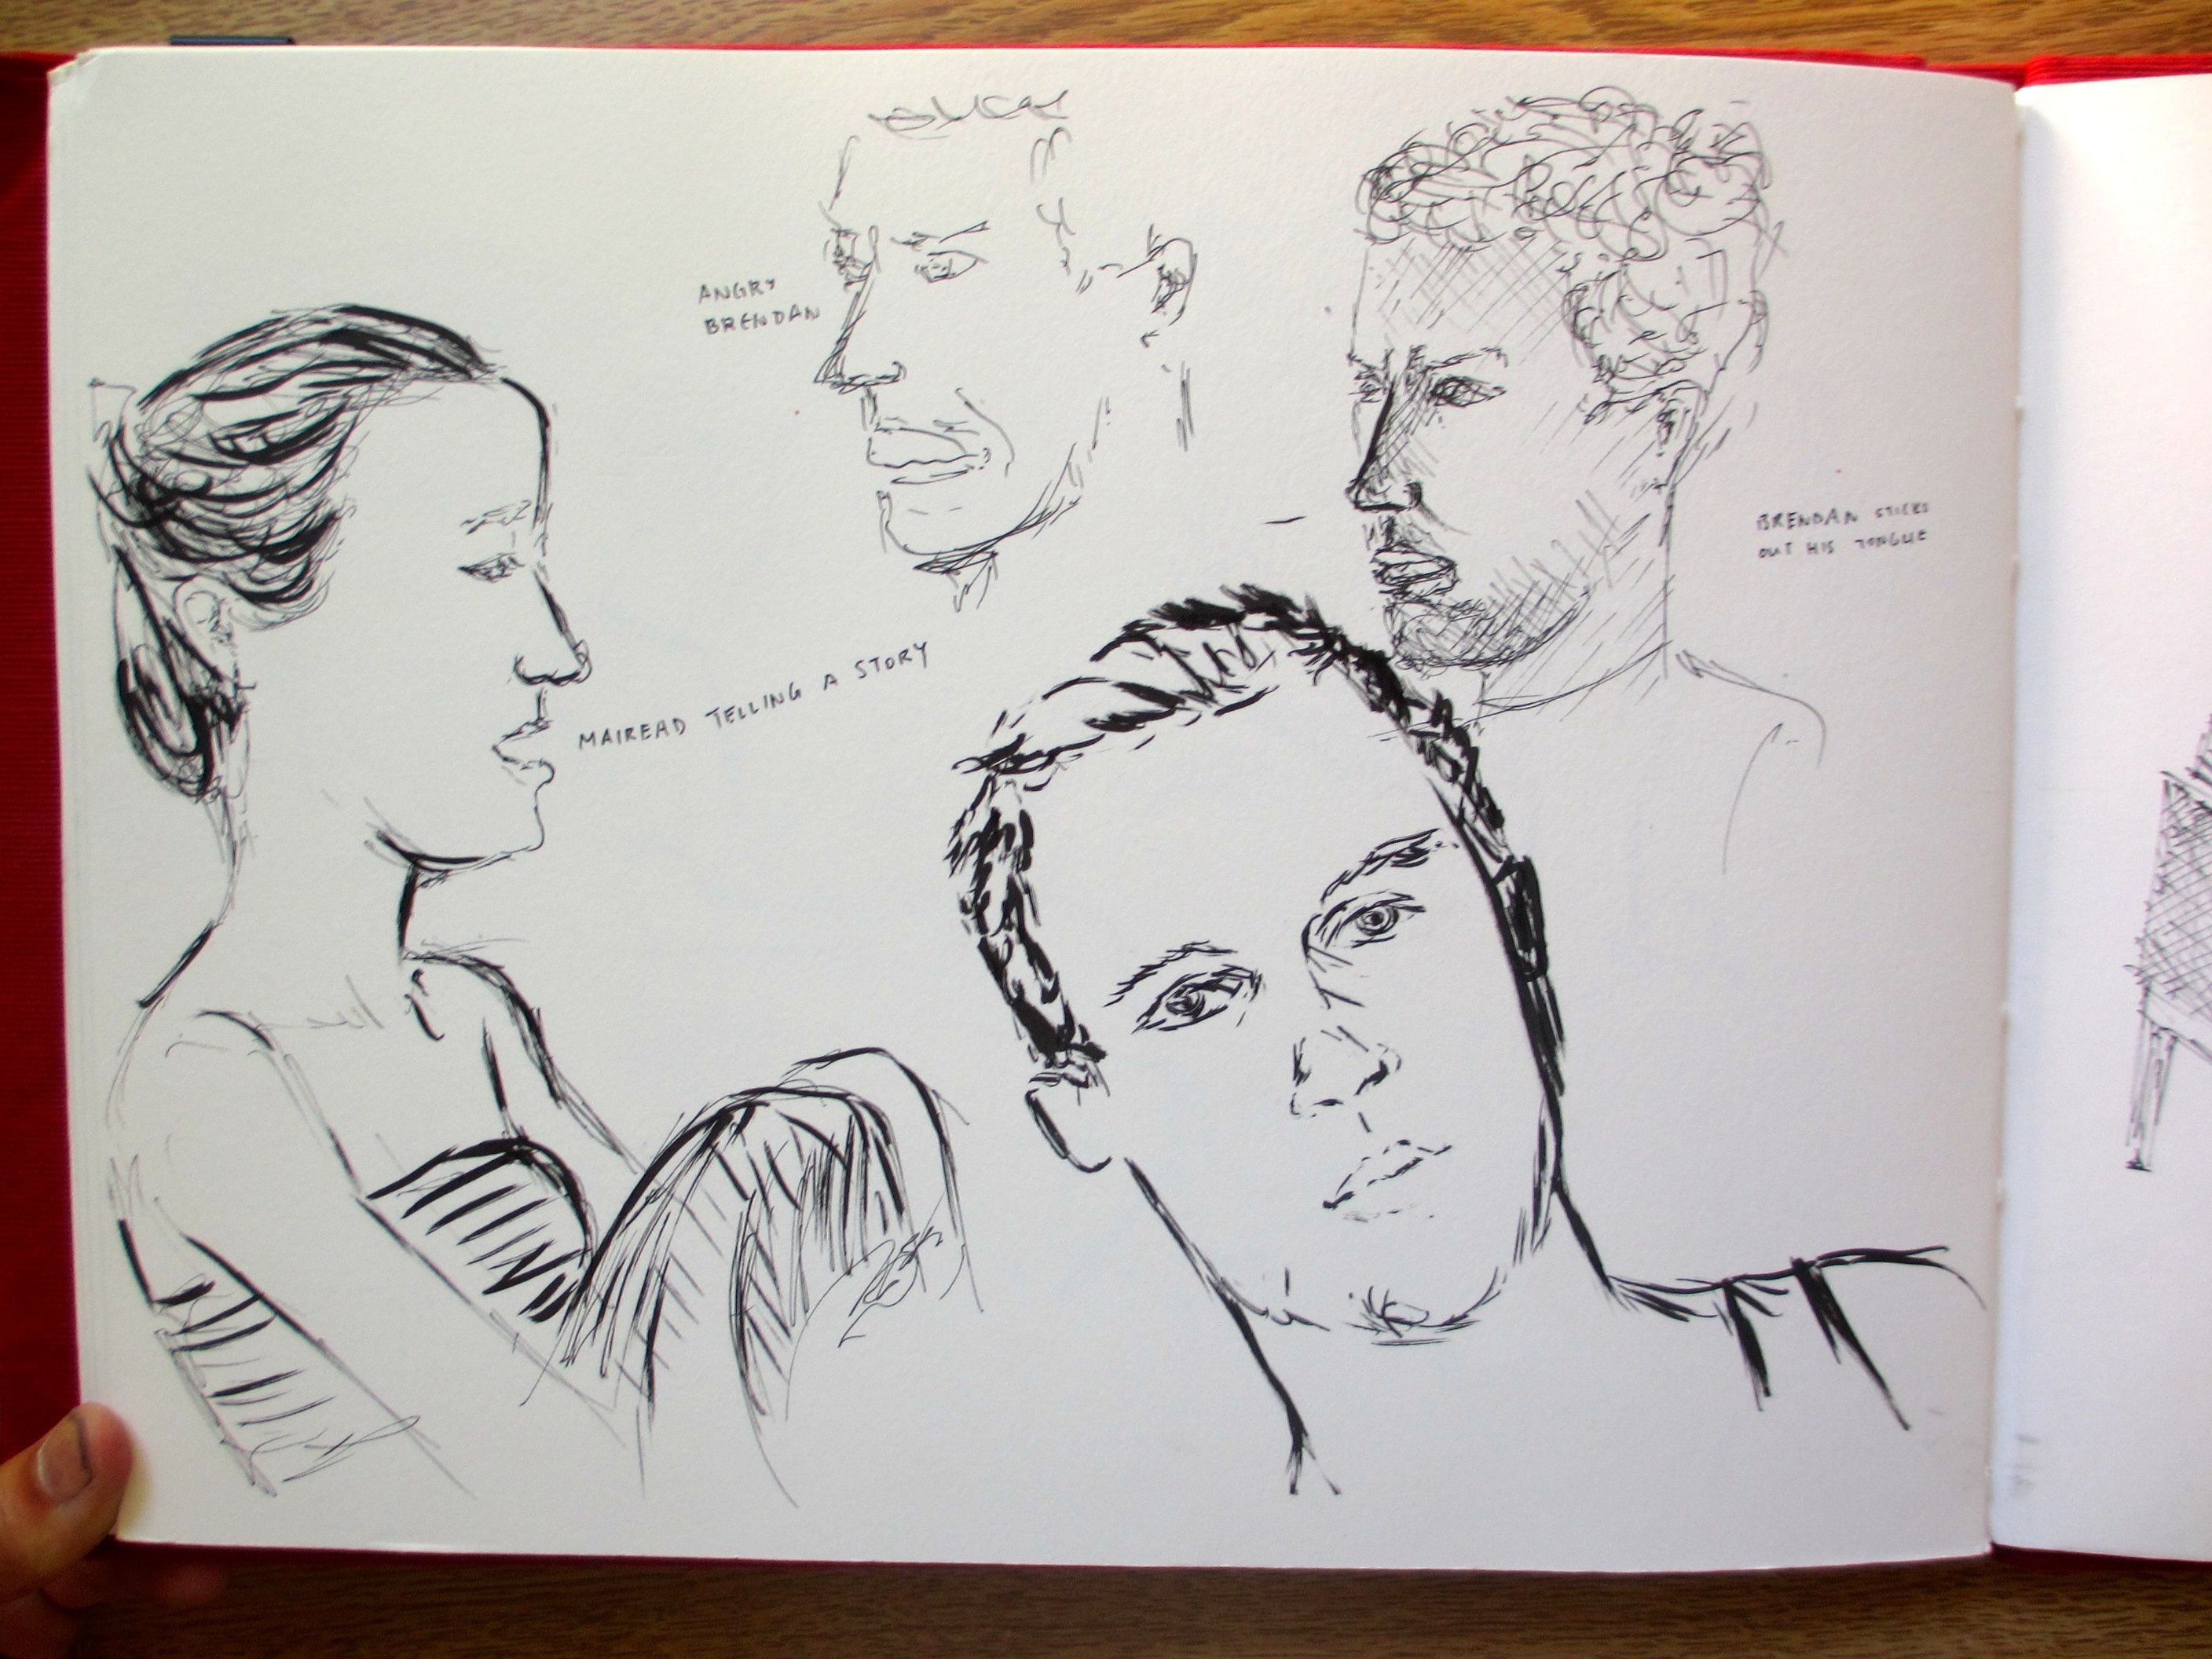 ANGRY
BRENDAN
BRENDAN STICKS
OUT HIS TONGUE
MAIREAD TELLING A STORY